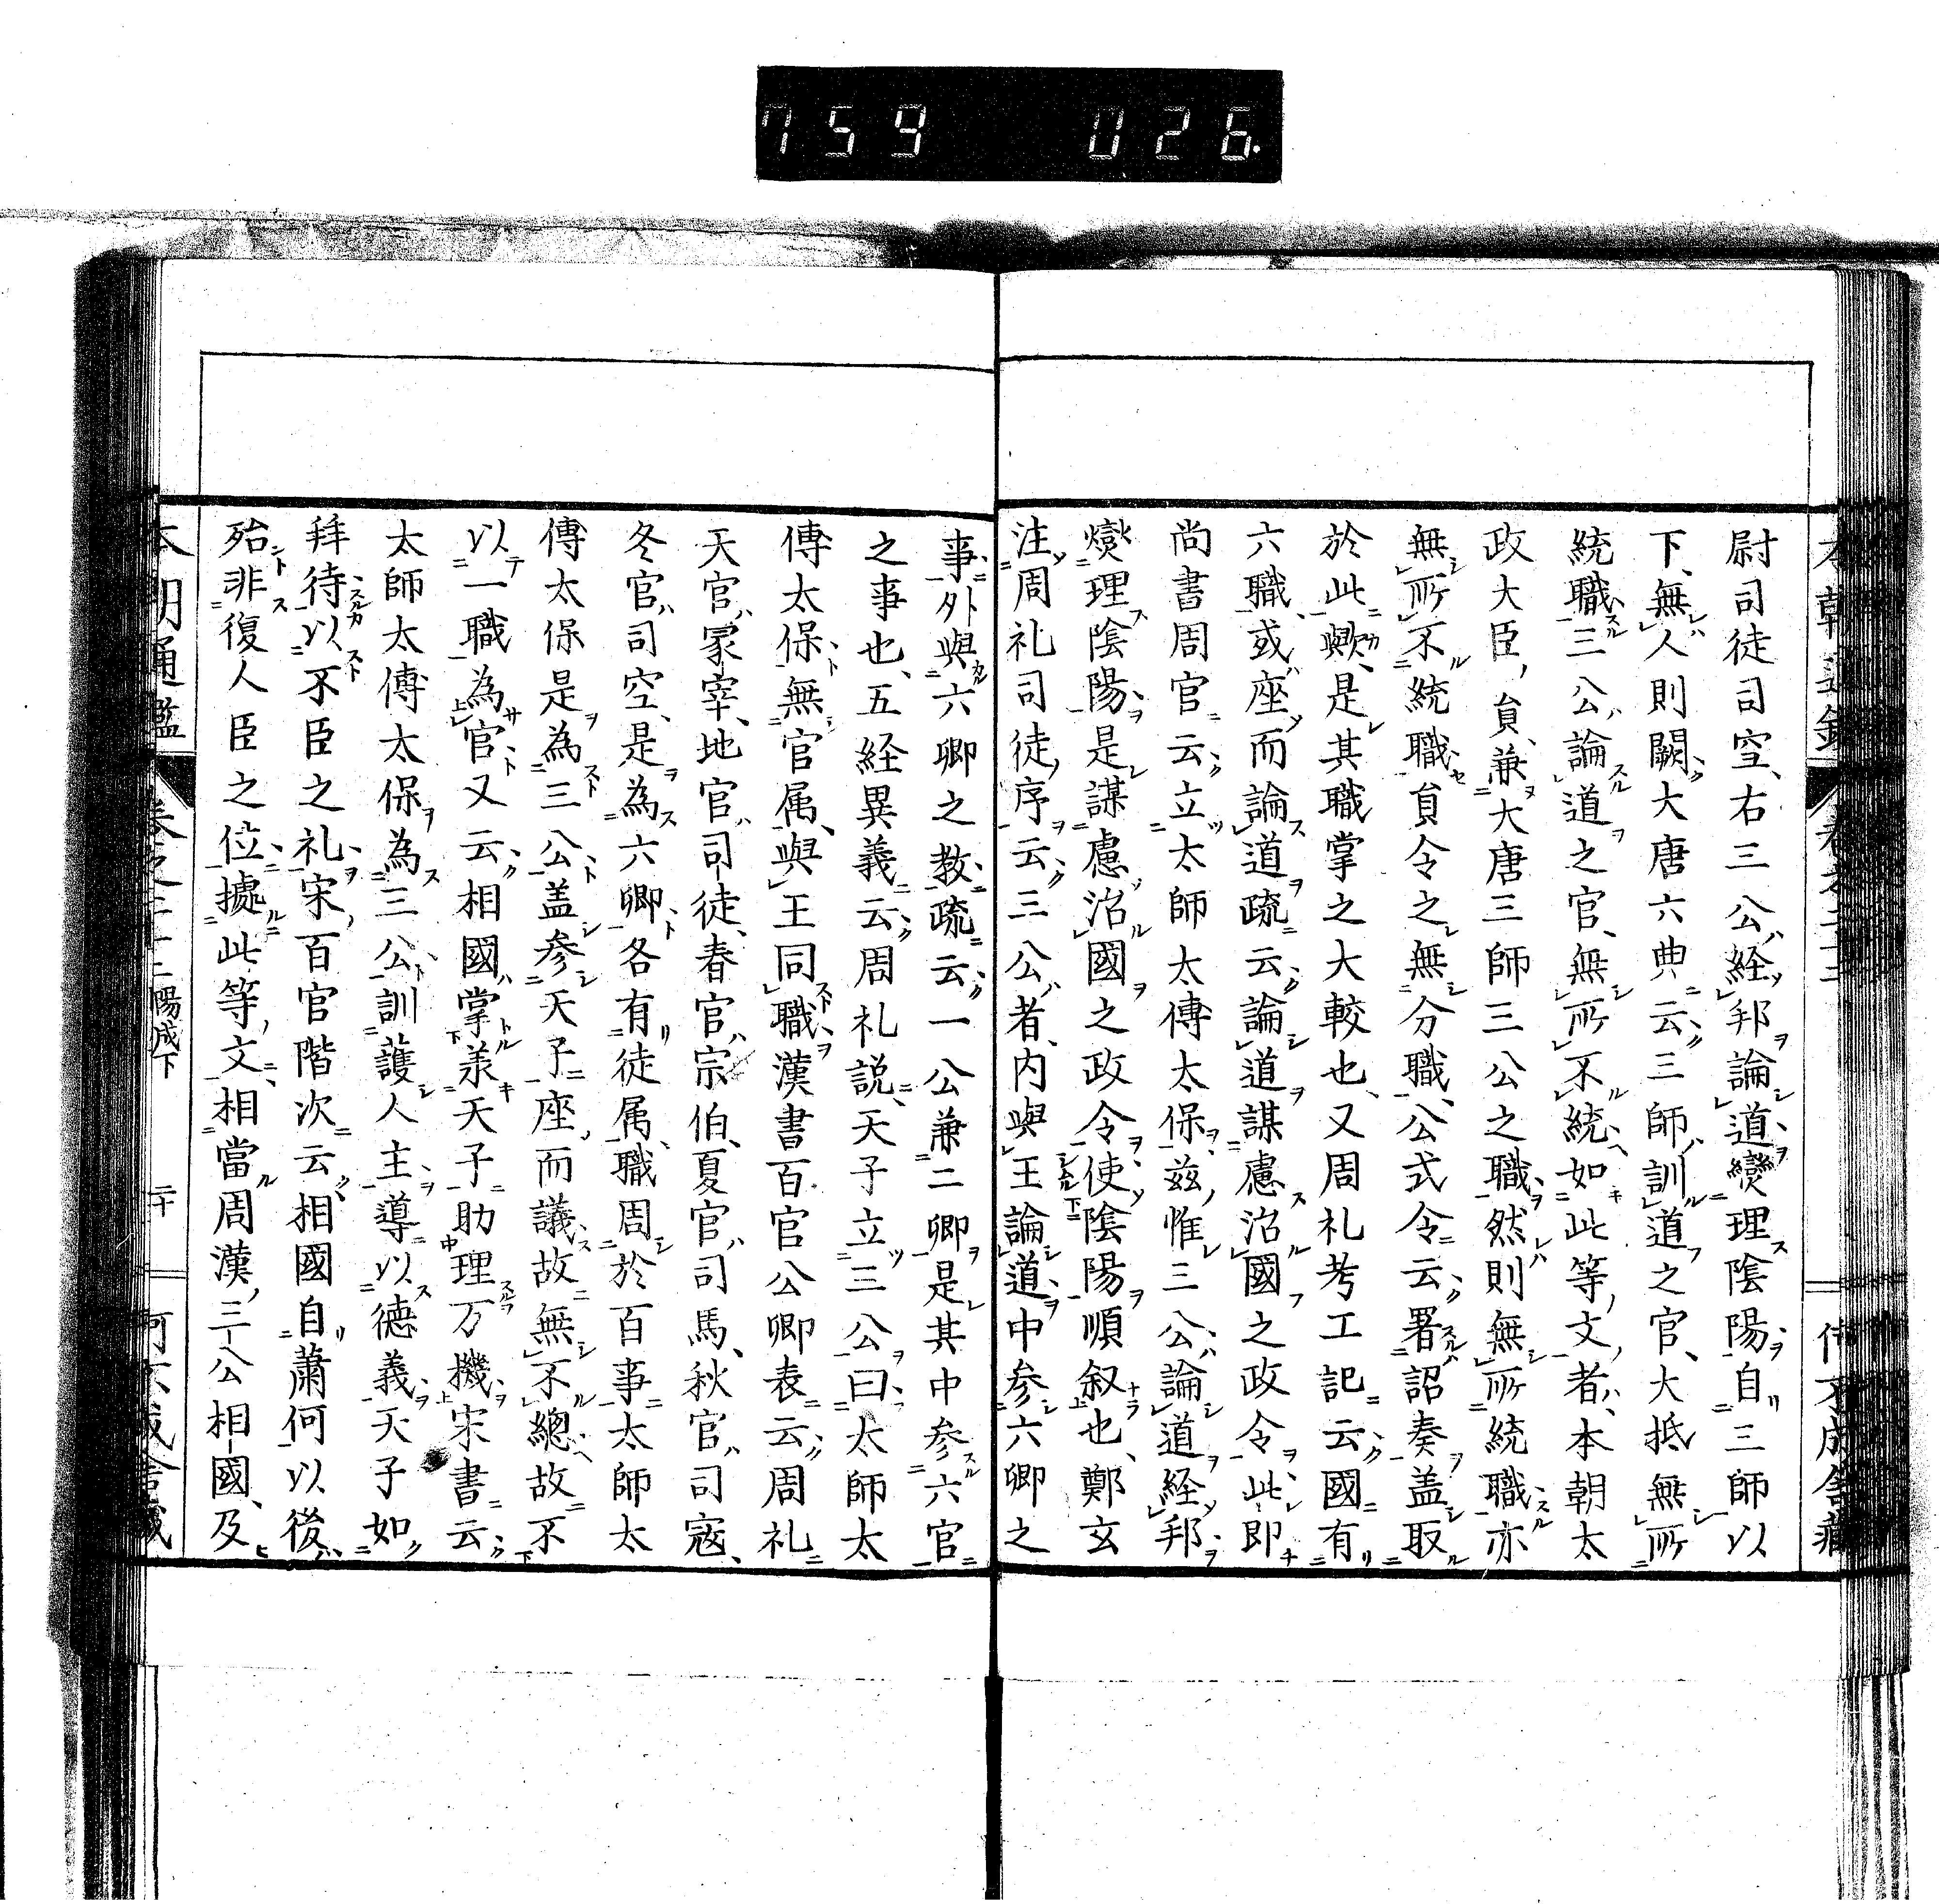 759 026.
尉司徒司空、右三公、経邦論道、爕理陰陽、自三師以
下、無人則闕、大唐六典云、三師訓道之官、大抵無所
統職、三公論道之官、無所不統、如此等文者、本朝太
政大臣、員、兼大唐三師三公之職、然則無所統職亦
無所不統職員令之無分職、公式令云、署詔奏盖取
於此歟、是其職掌之大較也、又周礼考工記云、國有
六職、或座而論道疏云、論道謀慮治國之政令、此即
尚書周官云、立太師太傅太保、玆惟三公、論道経邦、
爕理陰陽、是謀慮治國之政令、使陰陽順叙也、鄭玄
注周礼司徒序云、三公者、内與王論道、中参六卿之
事、外與六卿之教、疏云、一公兼二卿是其中参六官
之事也、五経異義云、周礼説、天子立三公曰、太師太
傅太保、無官属、與王同職、漢書百官公卿表云、周礼
天官、冢宰、地官、司徒、春官、宗伯、夏官、司馬、秋官、司寇、
冬官、司空、是為六卿、各有徒属、職周於百事太師太
傅太保是為三公、盖参天子座而議、故無不總故不
以一職為官、又云、相國掌羕天子助理万機、宋書云、
太師太傅太保為三公、訓護人主、導以德義、天子如
拜待以不臣之礼、宋百官階次云、相國自蕭何以後、
殆非復人臣之位、據此等文、相當周漢三公相國、及
本朝通鑑 卷之二十二 陽成下 二十